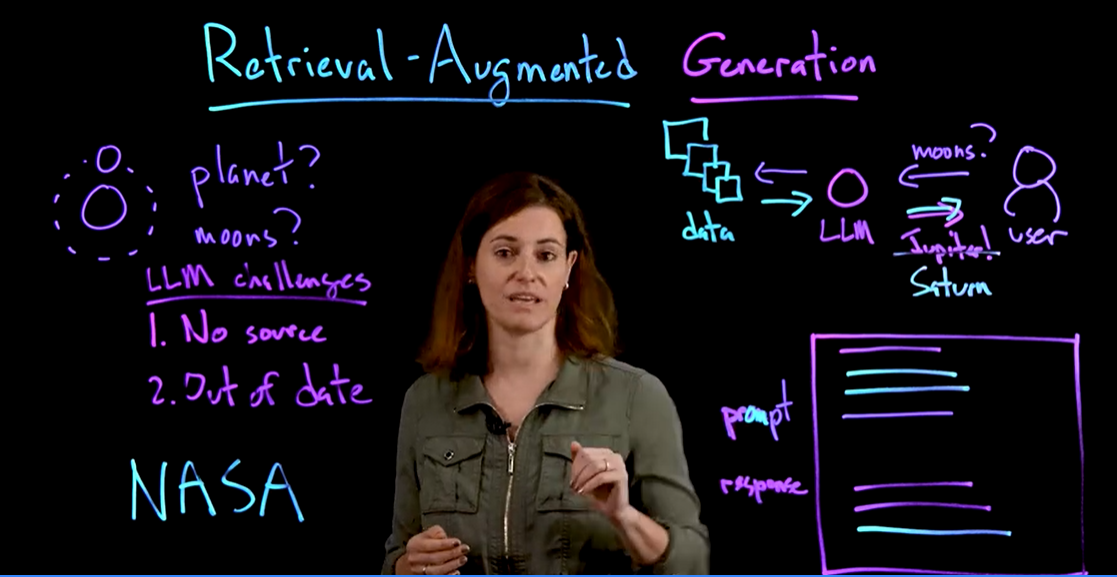 Retrieval-Augmented Generation
planet?
moons?
LLM challenges
1. No source
2. Out of date
NASA
data
LLM
moons?
Jupiter!
Saturn
user
prompt
response